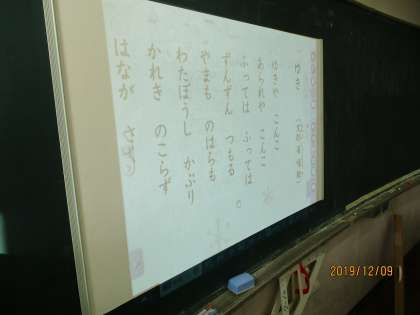 ゆき (文部省唱歌)
ゆきや こんこ
あられや こんこ
ふっては ふっては
ずんずん つもる
やまも のはらも
わたぼうし かぶり
かれき のこらず
はなが さく
2019/12/09